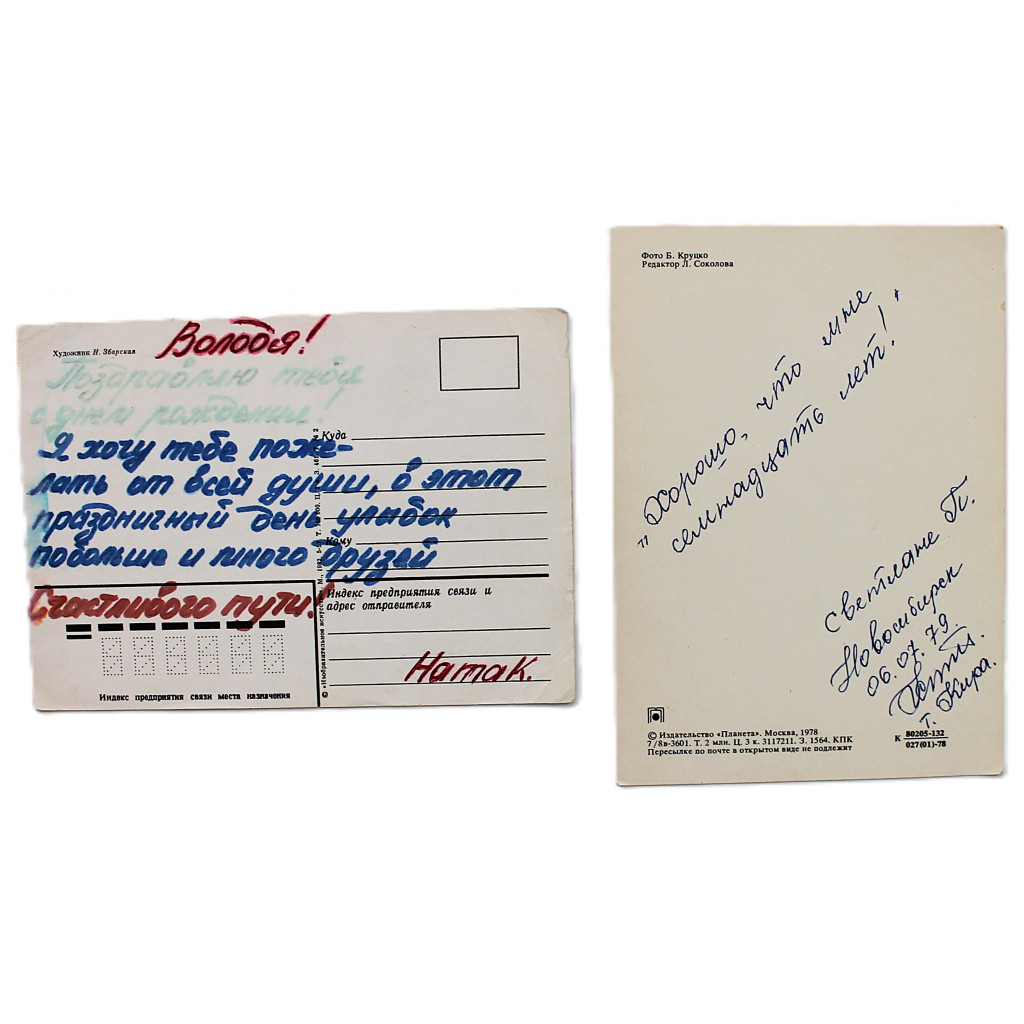 Художник Н. Зварская
Володя!
Поздравляю тебя
с днём рождения!
Я хочу тебе поже-
лать от всей души, в этот
праздничный день улыбок
побольше и много друзей
Счастливого пути!
Куда
Кому
Индекс предприятия связи и
адрес отправителя
Индекс предприятия связи места назначения
Ната К.
© «Изобразительное искусство». М., 1982.
Фото Б. Круцко
Редактор Л. Соколова
"Хорошо, что мне
семнадцать лет!"
Светлане П.
Новосибирск
06.07.79.
т. Кира.
© Издательство «Планета». Москва, 1978
7/8в-3601. Т. 2 млн. Ц. 3 к. 3117211. З. 1564. КПК
Пересылке по почте в открытом виде не подлежит
К 80205-132
027(01)-78